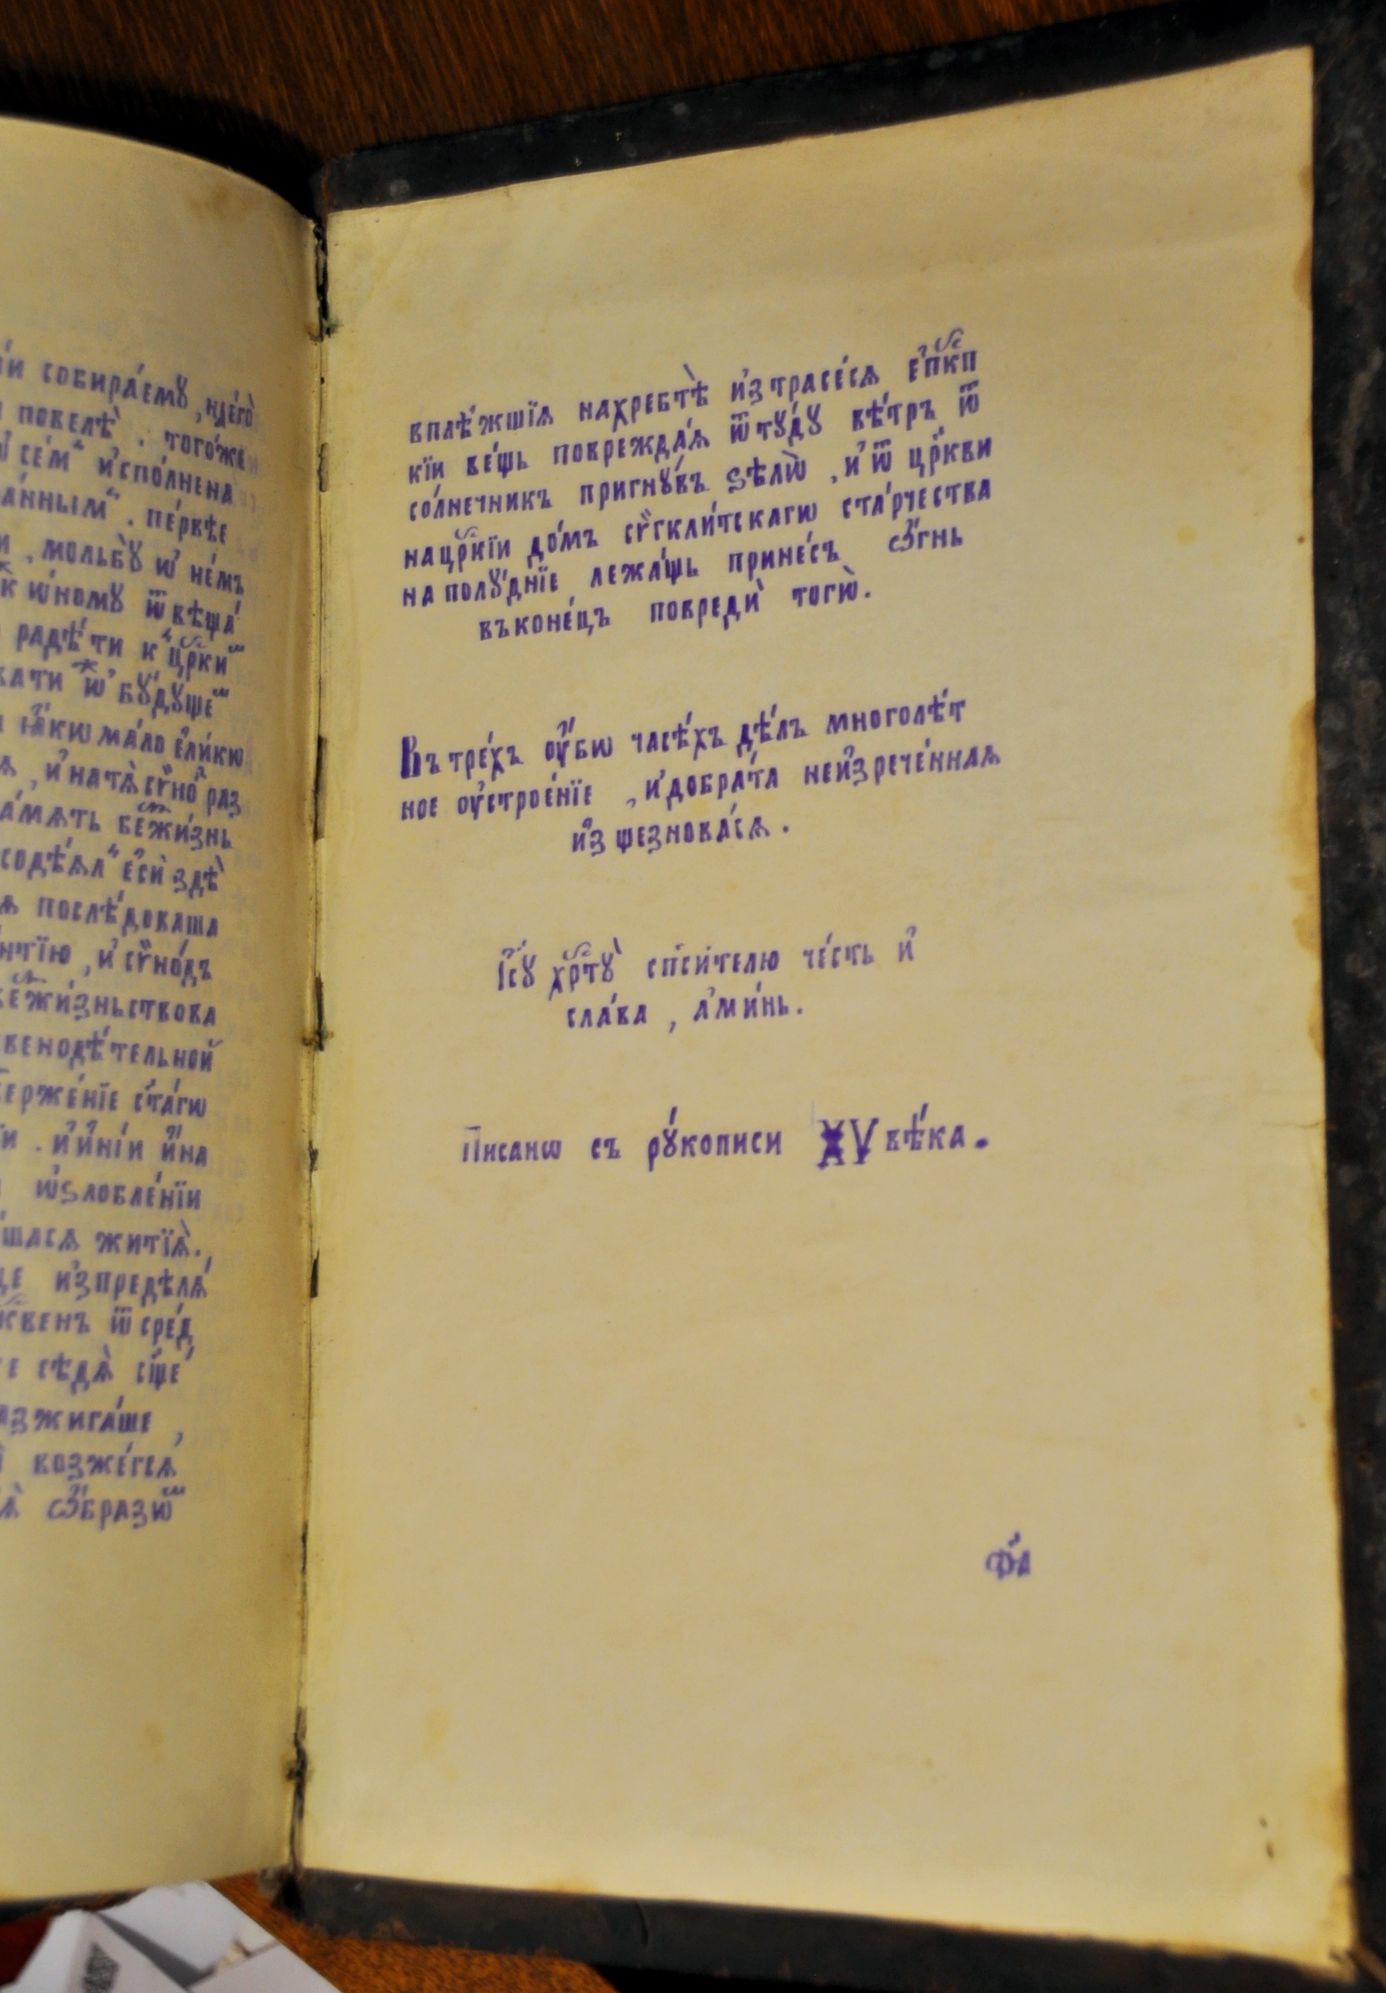 собира́емꙋ,
повелѣ̀. того́же
се́м и҆спо́лнена
пе́рвѣе
мольбꙋ̀ ѡ҆ не́мъ
ю҆́номꙋ ѿвѣща́
радѣ́ти к цр҃ки
бꙋ́дꙋще
ꙗ҆́кѡ ма́ло є҆ли́кѡ
раз
бежи́знь
содѣ́ѧл є҆сѝ здѣ̀
послѣ́доваша
и҆ сѵно́дъ
бежи́зньствова
венодѣ́тельной
держе́нїе ст҃а́гѡ
и҆ и҆ні́и и҆́на
ѡ҆ѕлобле́нїи
шасѧ житїѧ̀.,
и҆зпредѣлѧ́
квенъ ѿ сре́д
сѣдѧ̀ сщ҃е
азжига́ше,
возже́гсѧ
ѻ҆́бразѡ
вплѣ́жшїѧ нахребтѣ̀ и҆зтрасе́сѧ є҆пкⷭ҇п
кїи ве́щь поврежда́ѧ ѿтꙋ́дꙋ вѣ́тръ ѿ
со́лнечникъ пригнꙋ́въ ѕѣлѡ̀, и҆ ѿ цр҃кви
нацрⷭ҇кїи до́мъ сѵгкли́тскагѡ ста́рчества
на полꙋ́днїе лежа́щь прине́съ ѻ҆́гнь
въ коне́цъ повредѝ тогѡ̀.
Въ тре́хъ ᲂу҆́бѡ часѣ́хъ дѣ́лъ многолѣ́т
ное ᲂу҆строе́нїе, и҆ добрáта неи҆зрече́ннаѧ
и҆зщезнова́сѧ.
І҆с҃ꙋ хрⷭ҇тꙋ̀ сп҃си́телю че́сть и҆
сла́ва, а҆ми́нь.
Писанѡ съ рꙋ́кописи XV вѣ́ка.
ф҃а